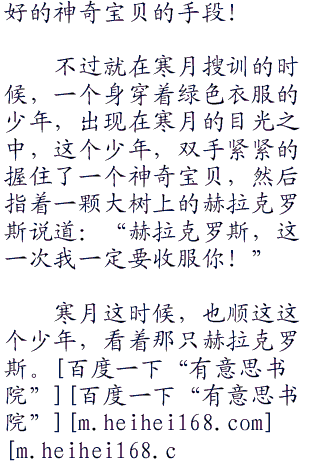 好的神奇宝贝的手段！
不过就在寒月搜训的时
候，一个身穿着绿色衣服的
少年，出现在寒月的目光之
中，这个少年，双手紧紧的
握住了一个神奇宝贝，然后
指着一颗大树上的赫拉克罗
斯说道：“赫拉克罗斯，这
一次我一定要收服你！”
寒月这时候，也顺这这
个少年，看着那只赫拉克罗
斯。[百度一下“有意思书
院”][百度一下“有意思书
院”][m.heihei168.com]
[m.heihei168.c